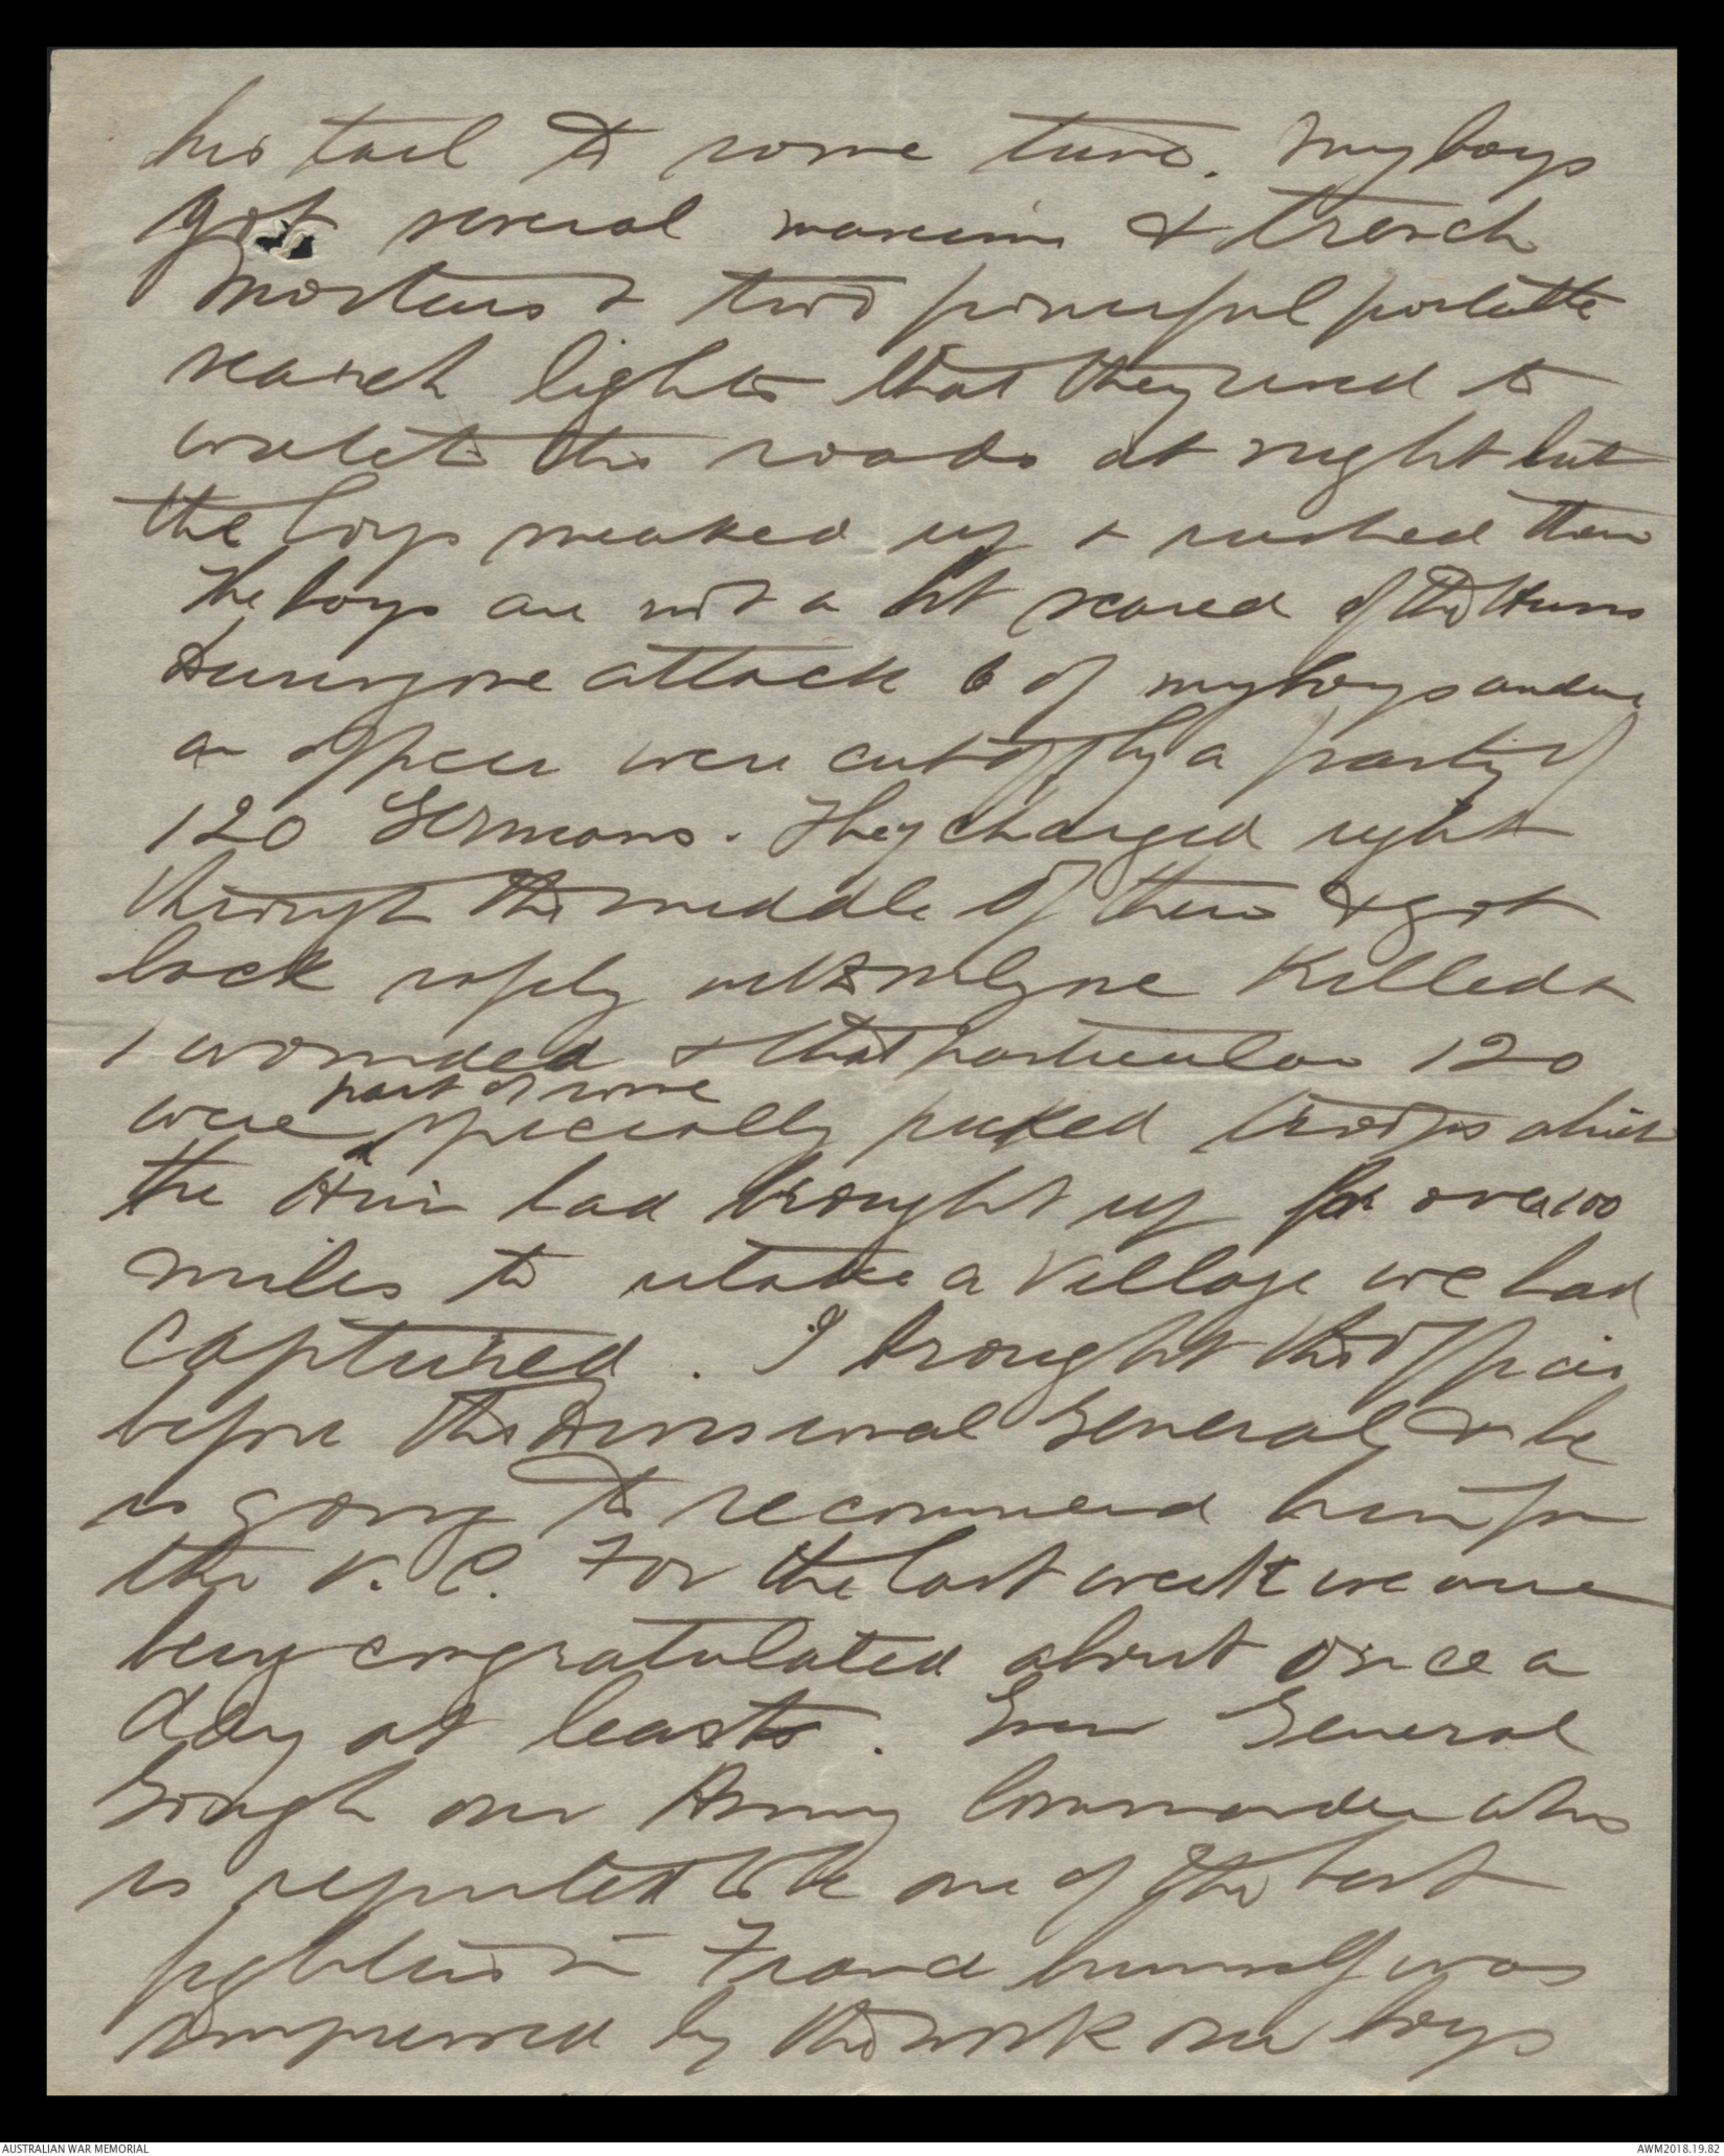 his tail to some tune. My boys
got several maxims & trench
mortars & two powerful portable
search lights that they used to
watch the roads at night but
the boys sneaked up & rushed them
The boys are not a bit scared of the Huns
During one attack 6 of my boys under
an officer were cut off by a party of
120 Germans. They charged right
through the middle of them & got
back safely with only one killed &
1 wounded & that particular 120
were part of some specially picked troops which
the Hun had brought up for over 100
miles to retake a village we had
captured. I brought the officer
before the Divisional General & he
is going to recommend him for
the V.C. For the last week we are
being congratulated about once a
day at least. Even General
Gough our Army Commander who
is reputed to be one of the best
fighters in France himself was
impressed by the work our boys
AUSTRALIAN WAR MEMORIAL
AWM2018.19.82